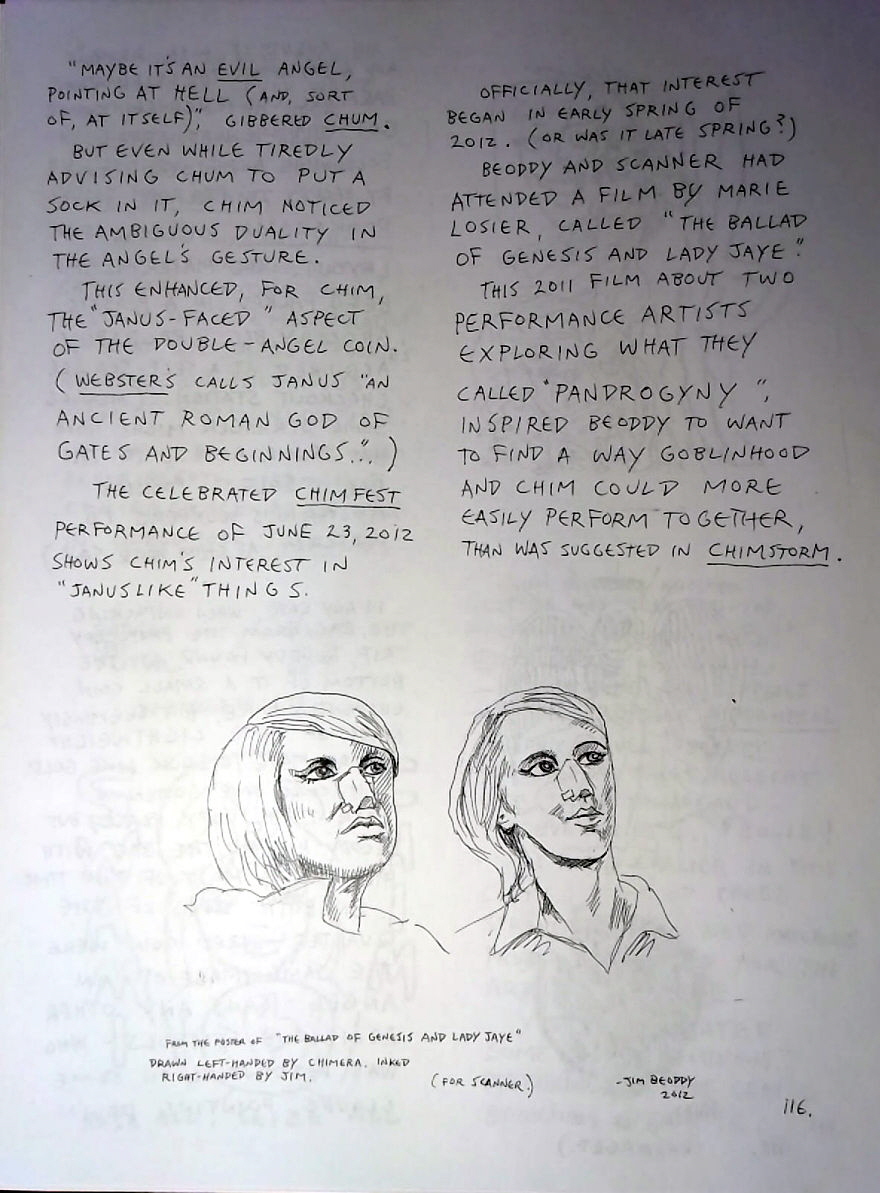 "MAYBE IT'S AN EVIL ANGEL,
POINTING AT HELL (AND, SORT
OF, AT ITSELF)," GIBBERED CHUM.
BUT EVEN WHILE TIREDLY
ADVISING CHUM TO PUT A
SOCK IN IT, CHIM NOTICED
THE AMBIGUOUS DUALITY IN
THE ANGEL'S GESTURE.
THIS ENHANCED, FOR CHIM,
THE "JANUS-FACED" ASPECT
OF THE DOUBLE-ANGEL COIN.
(WEBSTER'S CALLS JANUS "AN
ANCIENT ROMAN GOD OF
GATES AND BEGINNINGS...")
THE CELEBRATED CHIMFEST
PERFORMANCE OF JUNE 23, 2012
SHOWS CHIM'S INTEREST IN
"JANUSLIKE" THINGS.
OFFICIALLY, THAT INTEREST
BEGAN IN EARLY SPRING OF
2012. (OR WAS IT LATE SPRING?)
BEODDY AND SCANNER HAD
ATTENDED A FILM BY MARIE
LOSIER, CALLED "THE BALLAD
OF GENESIS AND LADY JAYE."
THIS 2011 FILM ABOUT TWO
PERFORMANCE ARTISTS
EXPLORING WHAT THEY
CALLED "PANDROGYNY",
INSPIRED BEODDY TO WANT
TO FIND A WAY GOBLINHOOD
AND CHIM COULD MORE
EASILY PERFORM TOGETHER,
THAN WAS SUGGESTED IN CHIMSTORM.
FROM THE POSTER OF "THE BALLAD OF GENESIS AND LADY JAYE"
DRAWN LEFT-HANDED BY CHIMERA. INKED
RIGHT-HANDED BY JIM.
(FOR SCANNER.)
-JIM BEODDY
2012
116.